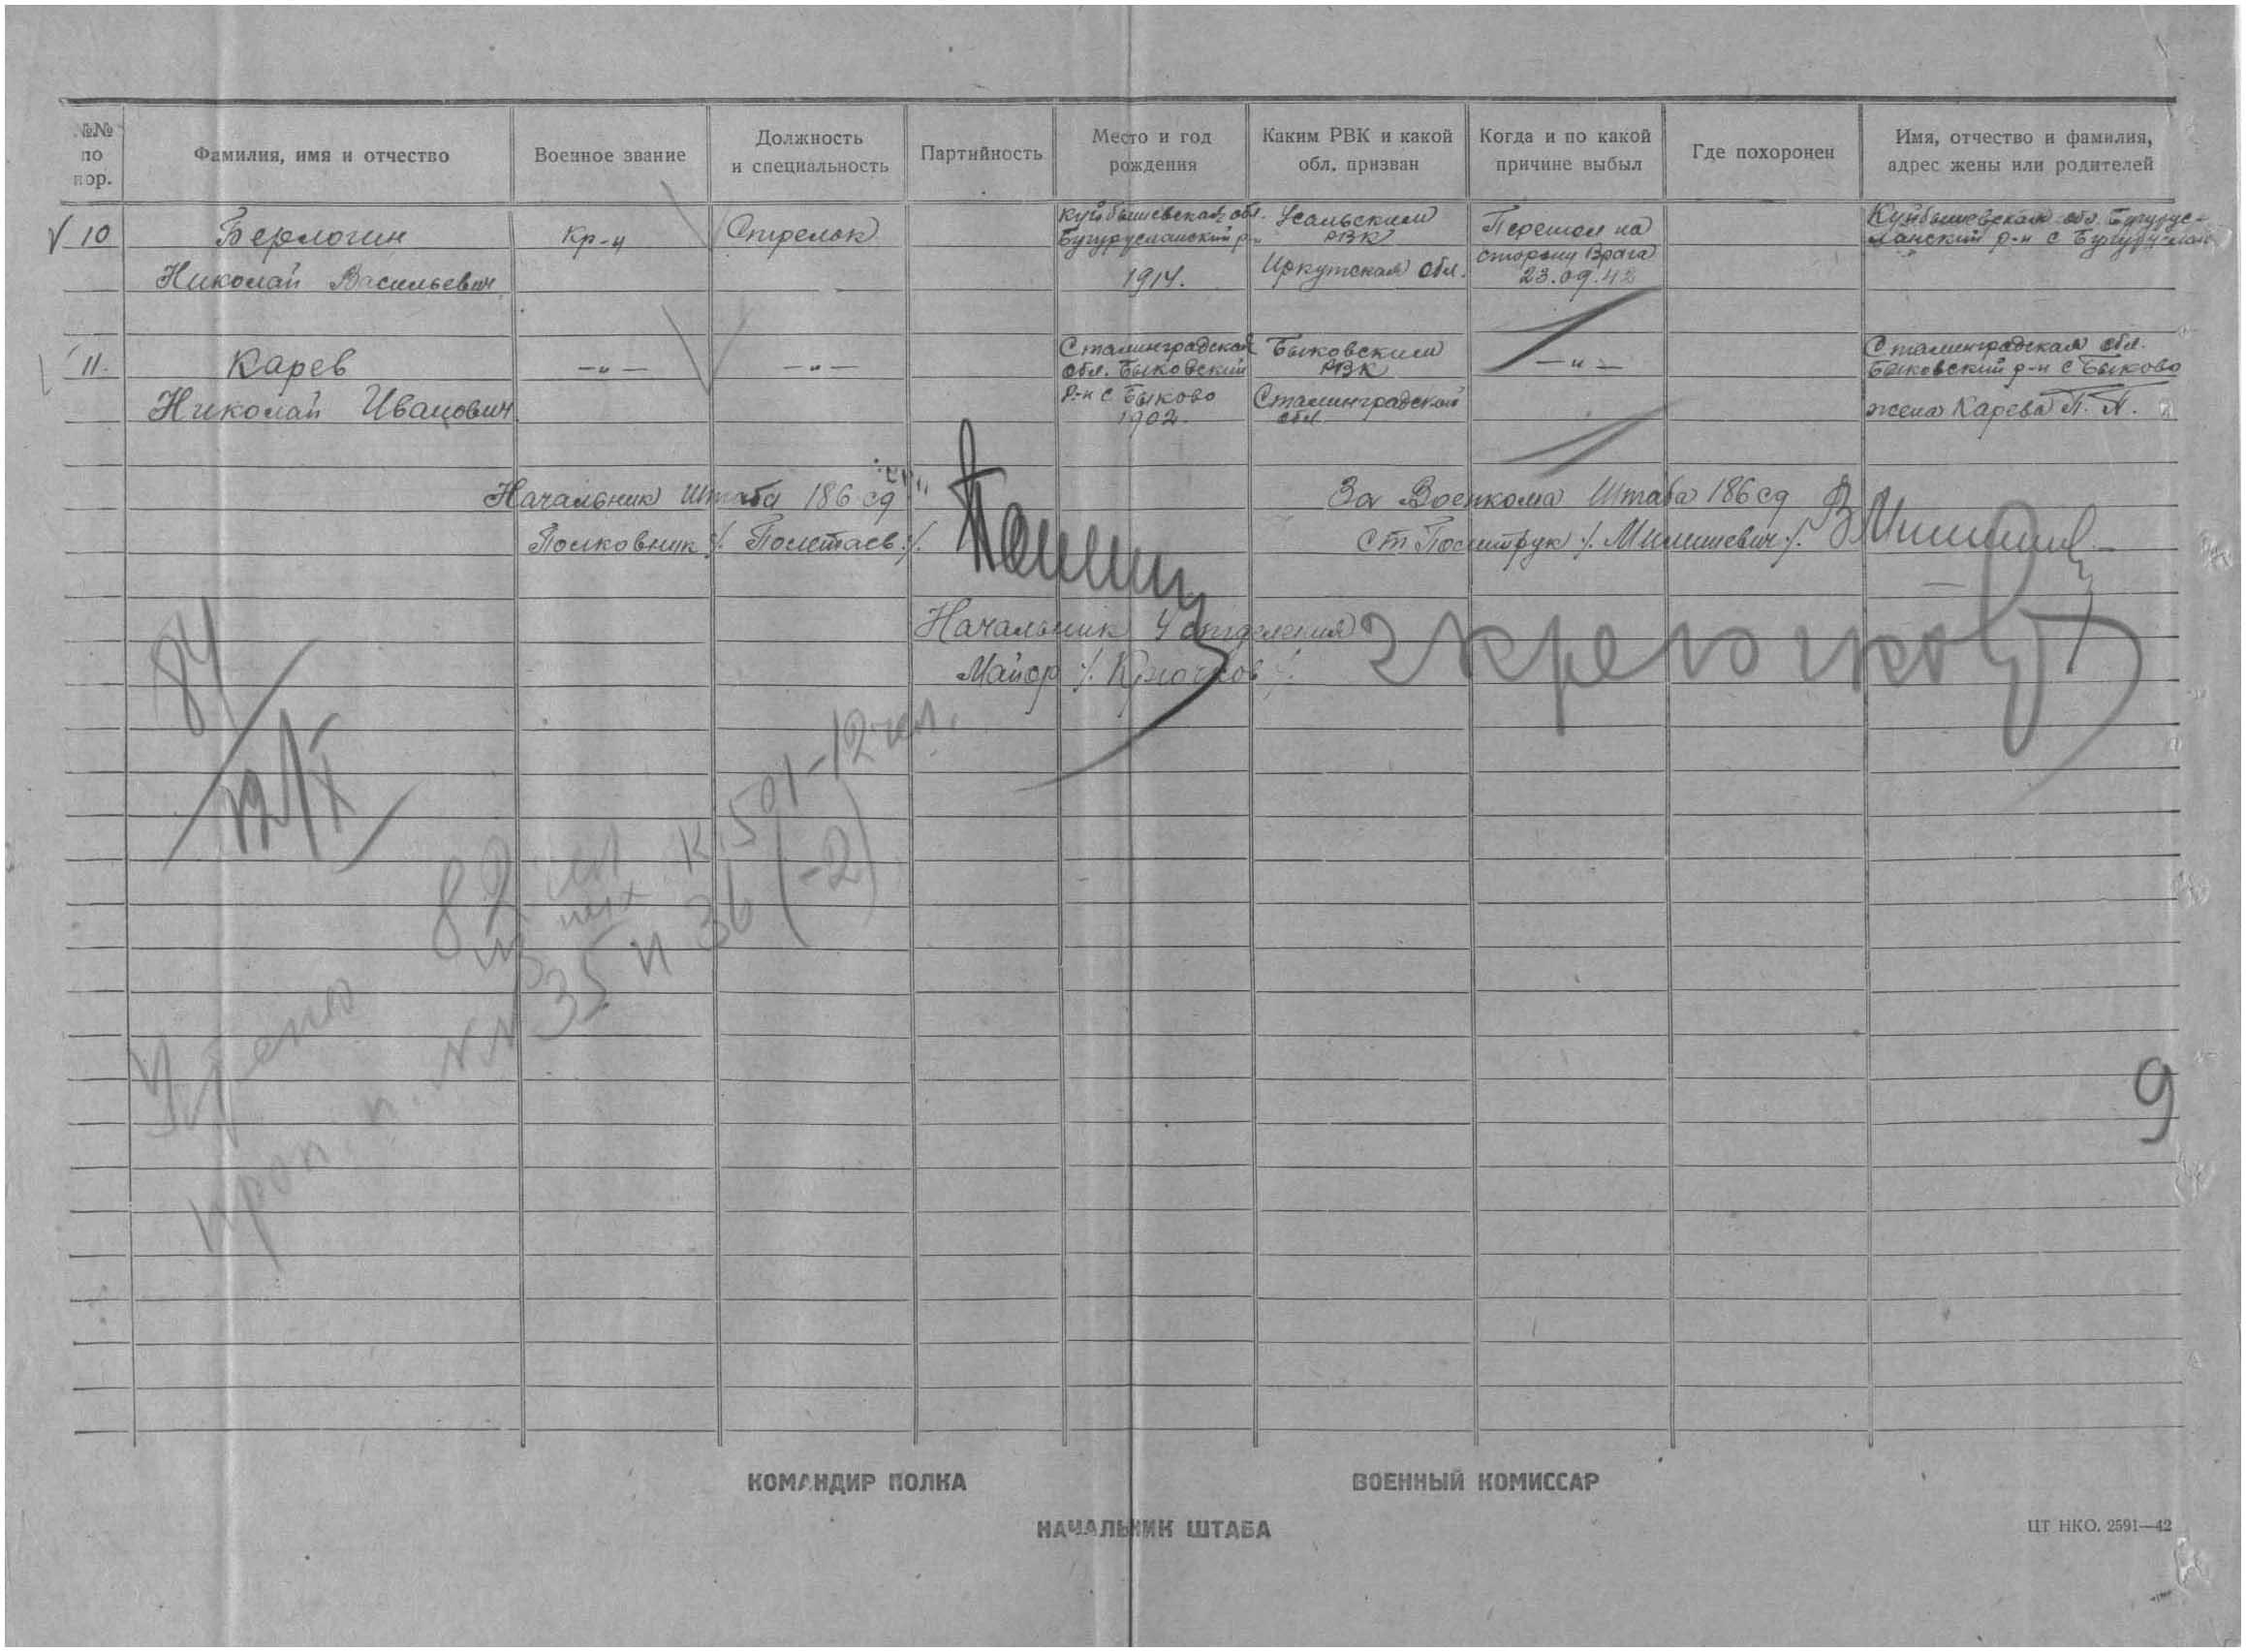 №№ по пор.
Фамилия, имя и отчество
Военное звание
Должность и специальность
Партийность
Место и год рождения
Каким РВК и какой обл. призван
Когда и по какой причине выбыл
Где похоронен
Имя, отчество и фамилия, адрес жены или родителей
10
Берлогин
Николай Васильевич
Кр-ц
Стрелок
Куйбышевская обл.
Бугурусланский р-н
1914.
Усольским
РВК
Иркутская обл.
Перешол на
сторону врага
23.09.42
Куйбышевская обл. Бугурус-
ланский р-н с Бугуруслан
11.
Карев
Николай Иванович
—"—
—"—
Сталинградская
обл. Быковский
р-н с Быково
1902.
Быковским
РВК
Сталинградской
обл
—"—
Сталинградская обл.
Быковский р-н с Быково
жена Карева П. П.
Начальник Штаба 186 сд
Полковник /. Полетаев ./.
За Военкома Штаба 186 сд
Ст Политрук /. Милишевич ./.
Начальник 4 отделения
Майор /. Крючков ./.
84
К 501-12 чел.
82 чел
из них
№№ 35 и 36 (-2)
Учтено
проп. п.
9
КОМАНДИР ПОЛКА
ВОЕННЫЙ КОМИССАР
НАЧАЛЬНИК ШТАБА
ЦТ НКО. 2591—42